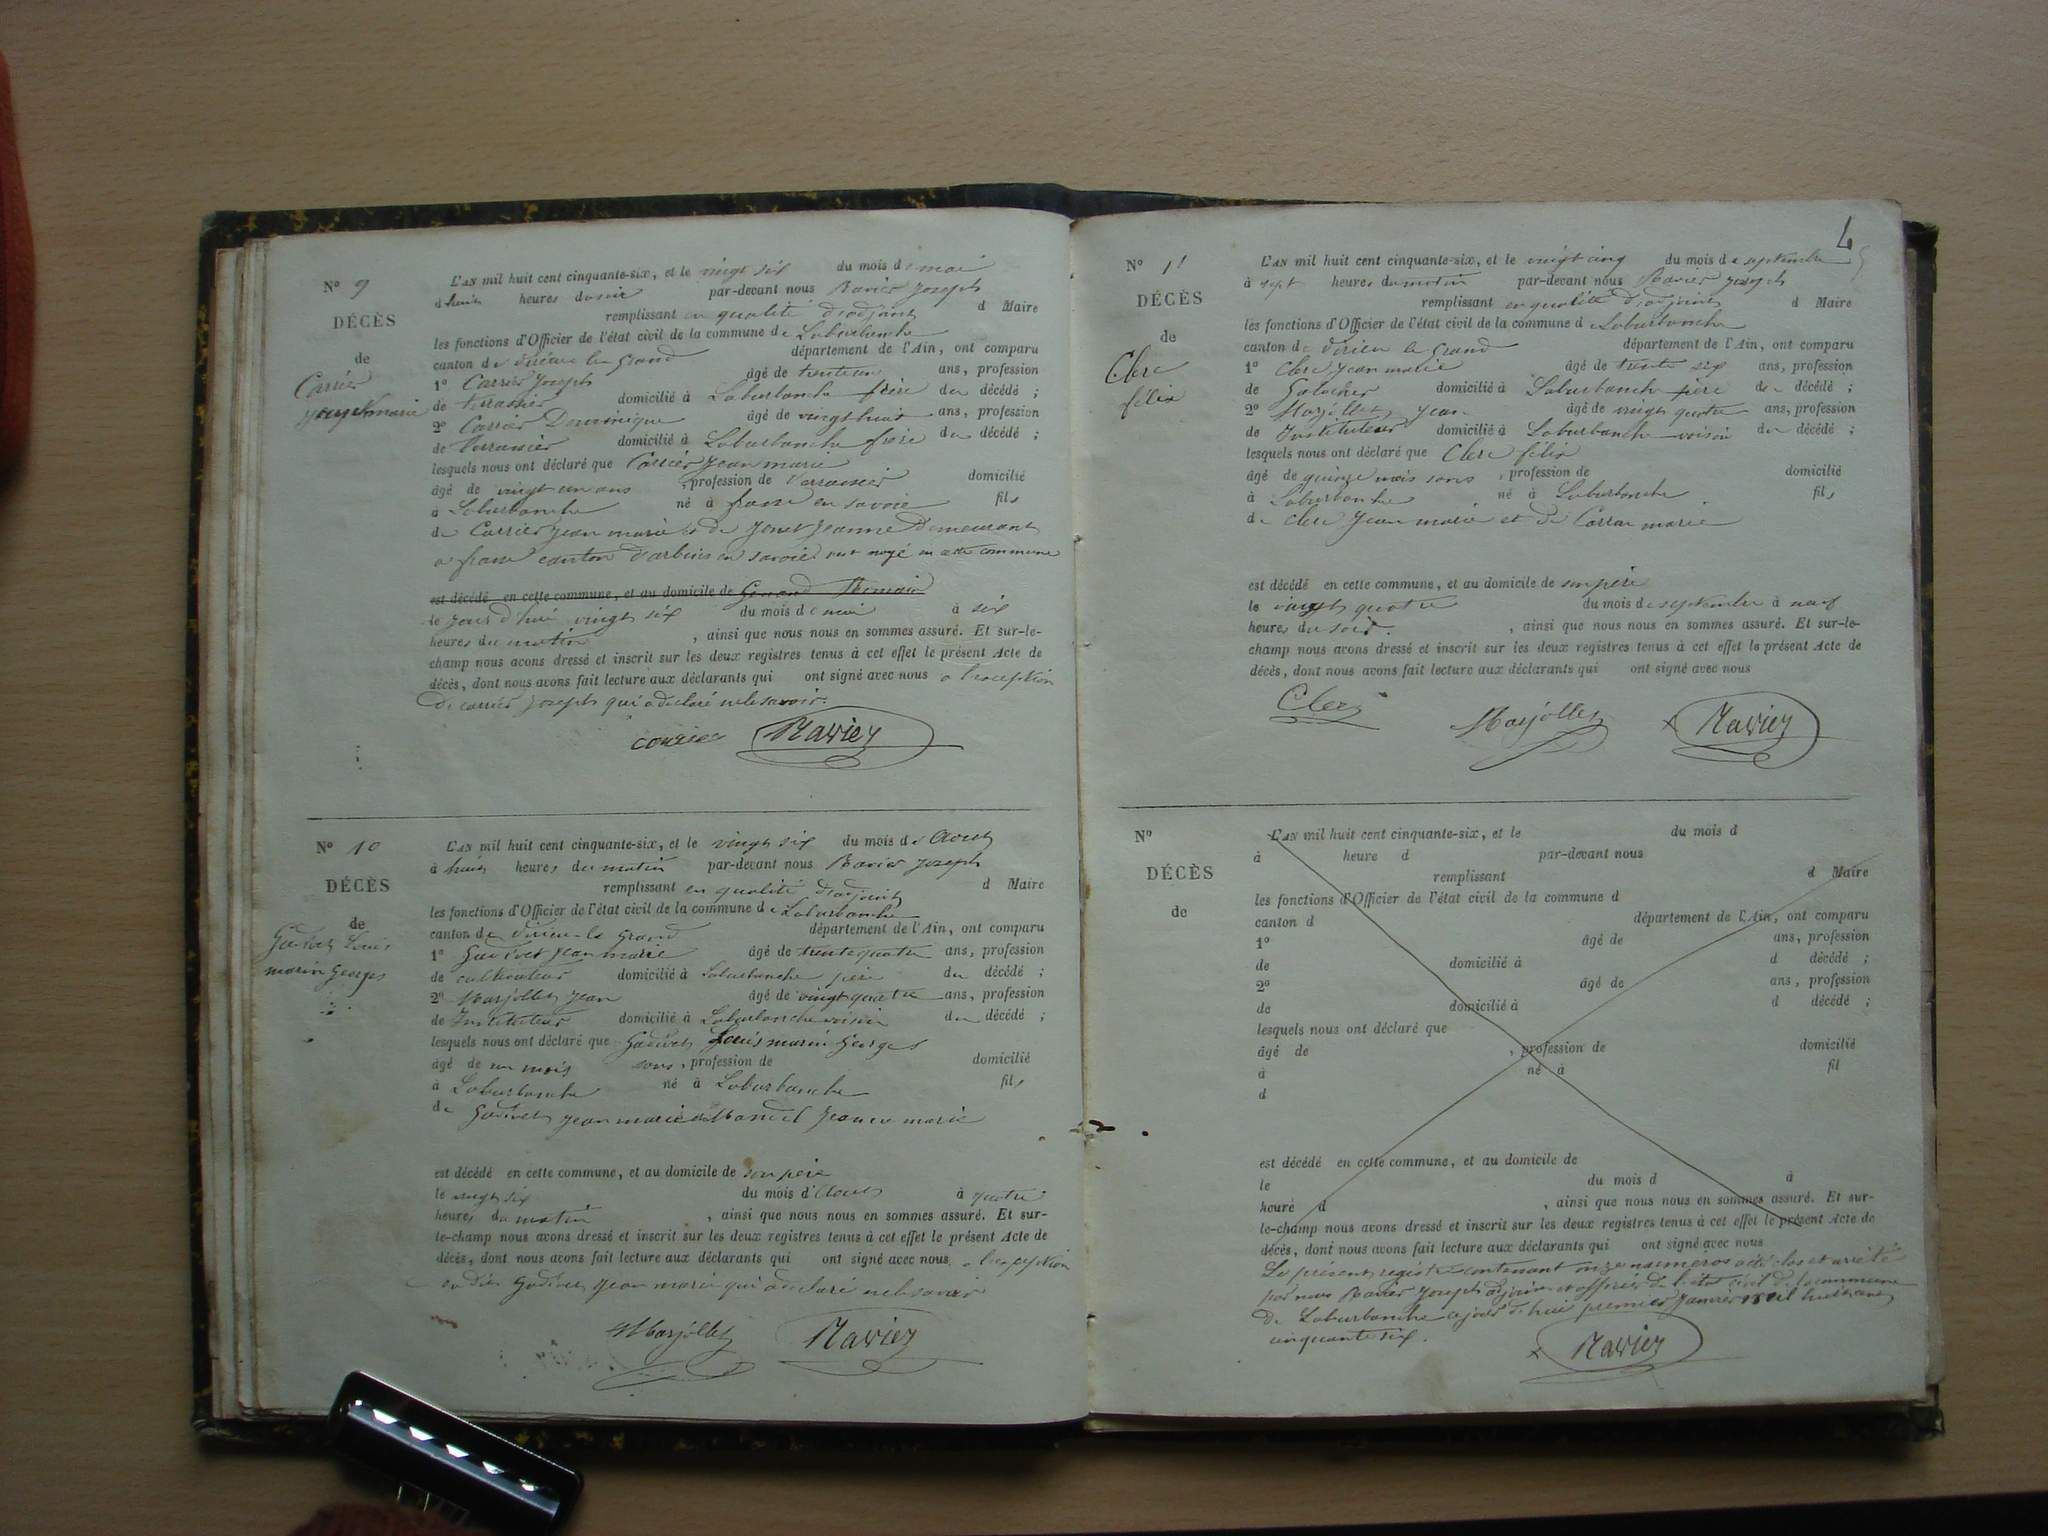 Nº 9
DÉCÈS
de
Carrier
L'AN mil huit cent cinquante-six, et le vingt six du mois de mai
à huit heures du soir par-devant nous Ravier Joseph
remplissant en qualité d'adjoint d Maire
les fonctions d'Officier de l'état civil de la commune de Laburbanche
canton de Virieu le Grand département de l'Ain, ont comparu
1º Carrier Joseph âgé de trente un ans, profession
de terrassier domicilié à Laburbanche frère du décédé ;
2º Carrier Dominique âgé de vingt huit ans, profession
de Terrassier domicilié à Laburbanche frère du décédé ;
lesquels nous ont déclaré que Carrier Jean marie
âgé de vingt un ans , profession de Terrassier domicilié
à Laburbanche né à en savoie fils
de Carrier Jean marie et de Jeanne Demeurant
a canton d'arbins en savoie noyé en cette commune
est décédé en cette commune, et au domicile de
le jour d'hui vingt six du mois de mai à six
heures du matin , ainsi que nous nous en sommes assuré. Et sur-le-
champ nous avons dressé et inscrit sur les deux registres tenus à cet effet le présent Acte de
décès, dont nous avons fait lecture aux déclarants qui ont signé avec nous a l'exception
De carrier Joseph qui a declaré ne le savoir.
carrier Ravier
Nº 10
DÉCÈS
de
Godivet Louis
marin Georges
L'AN mil huit cent cinquante-six, et le vingt six du mois d'Aout
à huit heures du matin par-devant nous Ravier Joseph
remplissant en qualité d'adjoint d Maire
les fonctions d'Officier de l'état civil de la commune de Laburbanche
canton de Virieu-le Grand département de l'Ain, ont comparu
1º Godivet Jean marie âgé de trente quatre ans, profession
de cultivateur domicilié à Laburbanche père du décédé ;
2º Marjollet Jean âgé de vingt quatre ans, profession
de Instituteur domicilié à Laburbanche voisin du décédé ;
lesquels nous ont déclaré que Godivet Louis marin Georges
âgé de un mois sans , profession de domicilié
à Laburbanche né à Laburbanche fils
de Godivet Jean marie et Jeanne marie
est décédé en cette commune, et au domicile de son père
le vingt six du mois d'Aout à quatre
heures du matin , ainsi que nous nous en sommes assuré. Et sur-
le-champ nous avons dressé et inscrit sur les deux registres tenus à cet effet le présent Acte de
décès, dont nous avons fait lecture aux déclarants qui ont signé avec nous a l'exception
du dit Godivet Jean marie qui a declaré ne le savoir
Marjollet Ravier
Nº 11
DÉCÈS
de
Clerc
félix
L'AN mil huit cent cinquante-six, et le vingt cinq du mois de septembre
à sept heures du matin par-devant nous Ravier Joseph
remplissant en qualité d'adjoint d Maire
les fonctions d'Officier de l'état civil de la commune d Laburbanche
canton de Virieu le Grand département de l'Ain, ont comparu
1º Clerc Jean marie âgé de trente six ans, profession
de Galocher domicilié à Laburbanche père du décédé ;
2º Marjollet Jean âgé de vingt quatre ans, profession
de Instituteur domicilié à Laburbanche voisin du décédé ;
lesquels nous ont déclaré que Clerc félix
âgé de quinze mois sans , profession de domicilié
à Laburbanche né à Laburbanche fils
de Clerc Jean marie et de marie
est décédé en cette commune, et au domicile de son père
le vingt quatre du mois de septembre à neuf
heures du soir. , ainsi que nous nous en sommes assuré. Et sur-le-
champ nous avons dressé et inscrit sur les deux registres tenus à cet effet le présent Acte de
décès, dont nous avons fait lecture aux déclarants qui ont signé avec nous
Clerc Marjollet Ravier
Nº
DÉCÈS
de
L'AN mil huit cent cinquante-six, et le du mois d
à heure d par-devant nous
remplissant d Maire
les fonctions d'Officier de l'état civil de la commune d
canton d département de l'Ain, ont comparu
1º âgé de ans, profession
de domicilié à d décédé ;
2º âgé de ans, profession
de domicilié à d décédé ;
lesquels nous ont déclaré que
âgé de , profession de domicilié
à né à fil
d
est décédé en cette commune, et au domicile de
le du mois d à
heure d , ainsi que nous nous en sommes assuré. Et sur-
le-champ nous avons dressé et inscrit sur les deux registres tenus à cet effet le présent Acte de
décès, dont nous avons fait lecture aux déclarants qui ont signé avec nous
Le présent registre contenant onze numéros a été clos et arrêté
par nous Ravier Joseph adjoint et officier de l'état civil de la commune
de Laburbanche ajour d'hui premier Janvier mil huit cent
cinquante six.
Ravier